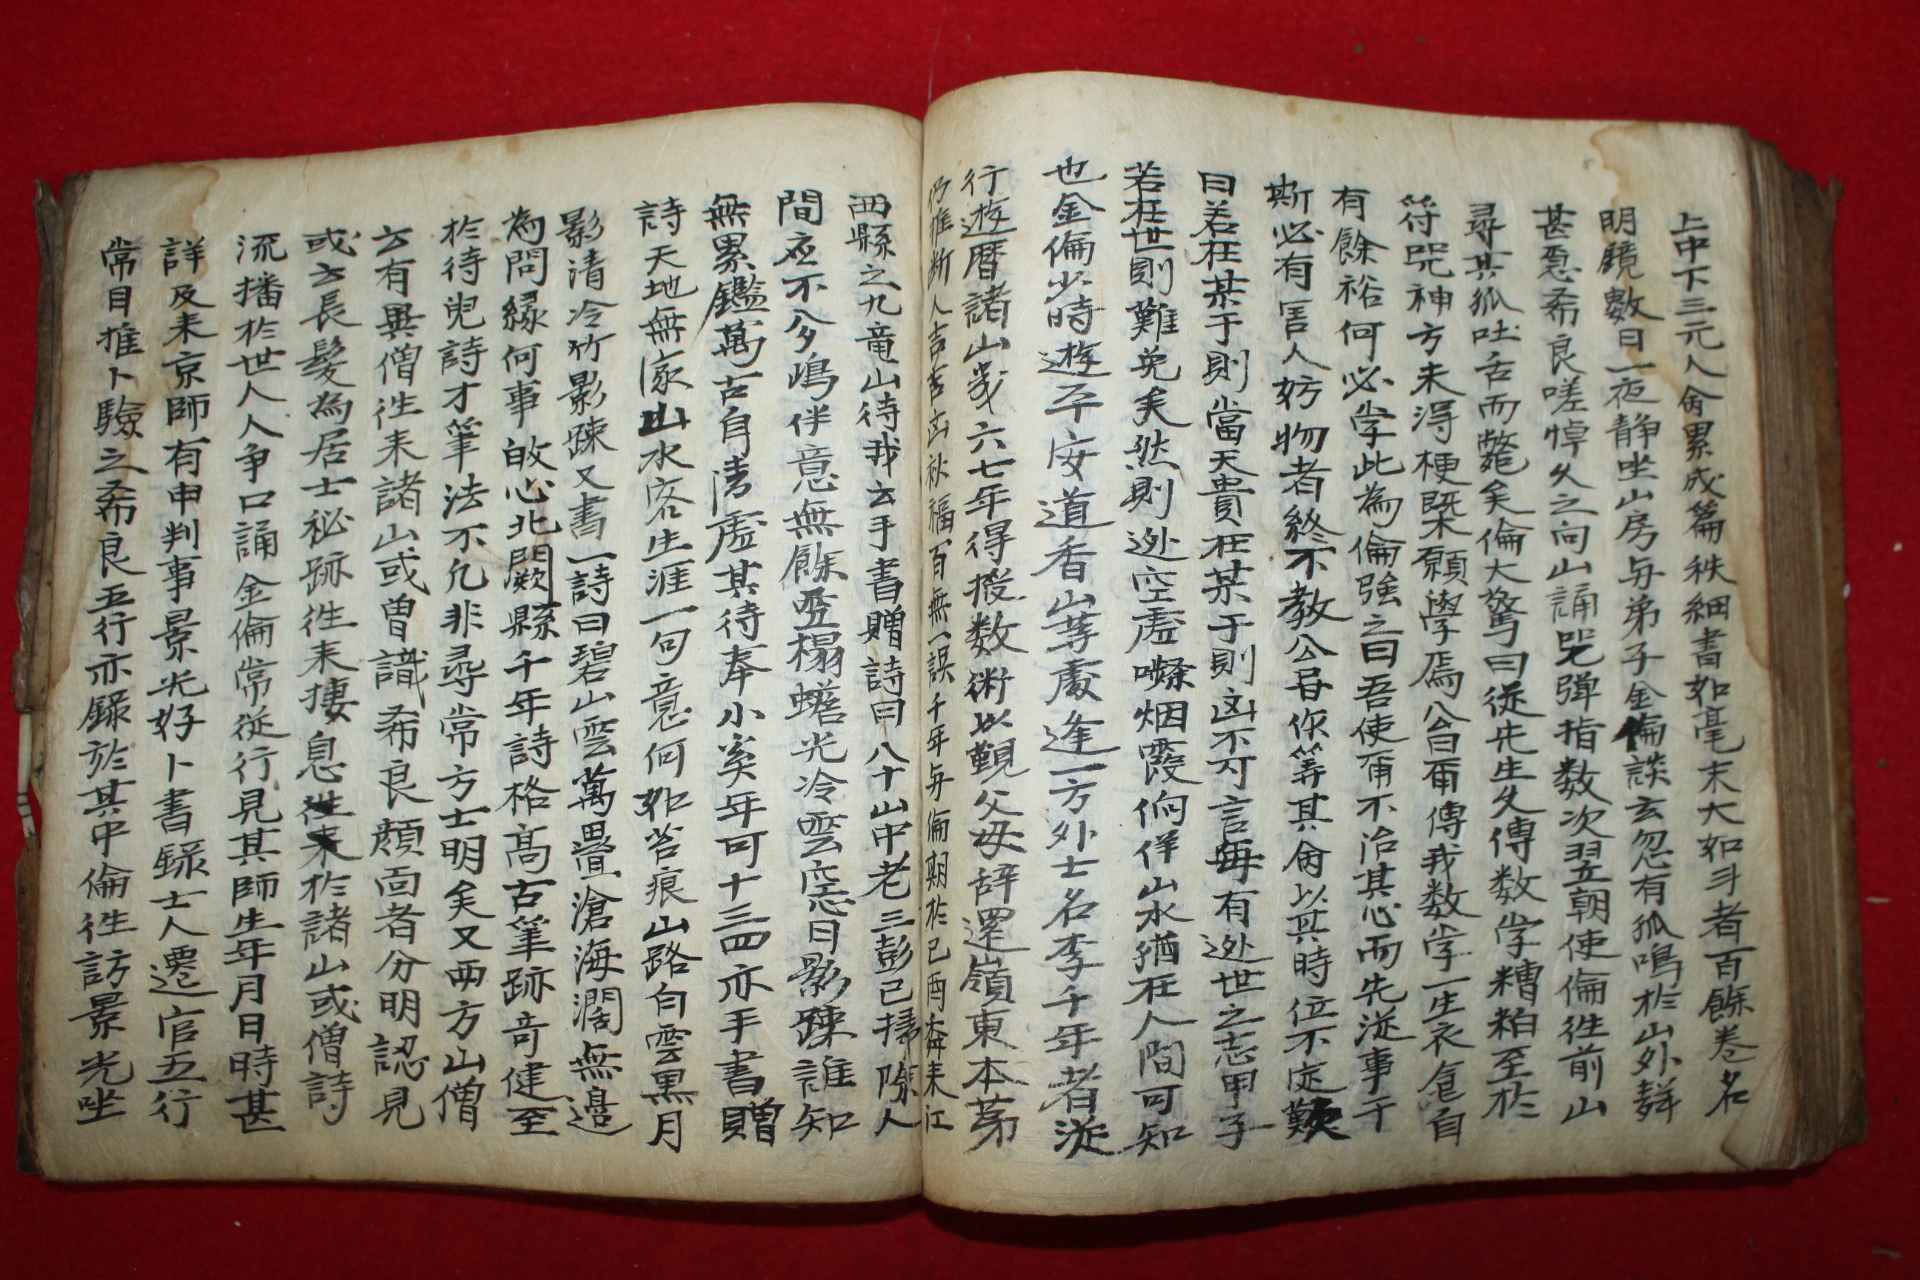 上中下三元人命累成篇秩細書如毫末大如斗者百餘卷名
明鏡數日一夜静坐山房与弟子金倫談玄忽有狐鳴於山外鋒
甚惡希良嗟悼久之向山誦咒彈指数次翌朝使倫徃前山
尋其狐吐舌而斃矣倫大驚曰從先生久傳数学糟粕至於
符咒神方未得梗槩願學焉公曰爾傳我数学一生衣食自
有餘裕何必学此為倫強之曰吾使爾不治其心而先從事于
斯必有害人妨物者終不教公尋你等其命以其時位不定難
曰若在某于則當天貴在某于則凶不可言每有逊世之志甲子
若在世則難免矣然則逊空虛 烟霞倘佯山水猶在人間可知
也金倫少時遊平安道香山等處逢一方外士名李千年者從
行遊曆諸山幾六七年得授数術以觀父母辞還嶺東本第
仍推断人吉凶秋福百無一誤千年与倫期於己酉奔来江
西縣之九竜山待我云手書贈詩曰八十山中老三彭已掃除人
間夜不分嶋伴意無餘塌蟾光冷雲窓日影踈誰知
無累鑑萬古自清虛其待奉小奚年可十三四亦手書贈
詩天地無家山水客生涯一句意何如苔痕山路白雲黑月
影清冷竹影踈又書一詩曰碧山雲萬疊滄海濶無邊
為問緣何事故心北闕縣千年詩格高古筆跡奇健至
於待兒詩才筆法不凡非尋常方士明矣又西方山僧
云有異僧徃来諸山或曾識希良顔面者分明認見
或云長髮為居士秘跡徃来棲息徃来於諸山或僧詩
流播於世人人争口誦金倫常從行見其師生年月日時甚
詳及来京師有申判事景光好卜書録士人遷官五行
常目推卜驗之希良五行亦録於其中倫徃訪景光坐